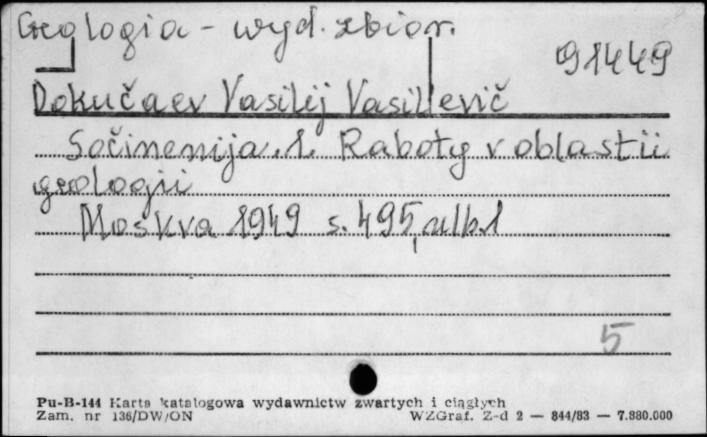 Geologia - wyd. zbior.
91449
Dokučaev Vasilij Vasil'evič
Sočinenija. 1. Raboty v oblastii
geologii
Moskva 1949 s. 495, alb. 1
5
Pu-B-144 Karta katalogowa wydawnictw zwartych i ciągłych
Zam. nr 136/DW/ON WZGraf. Z-d 2 — 844/83 — 7.880.000